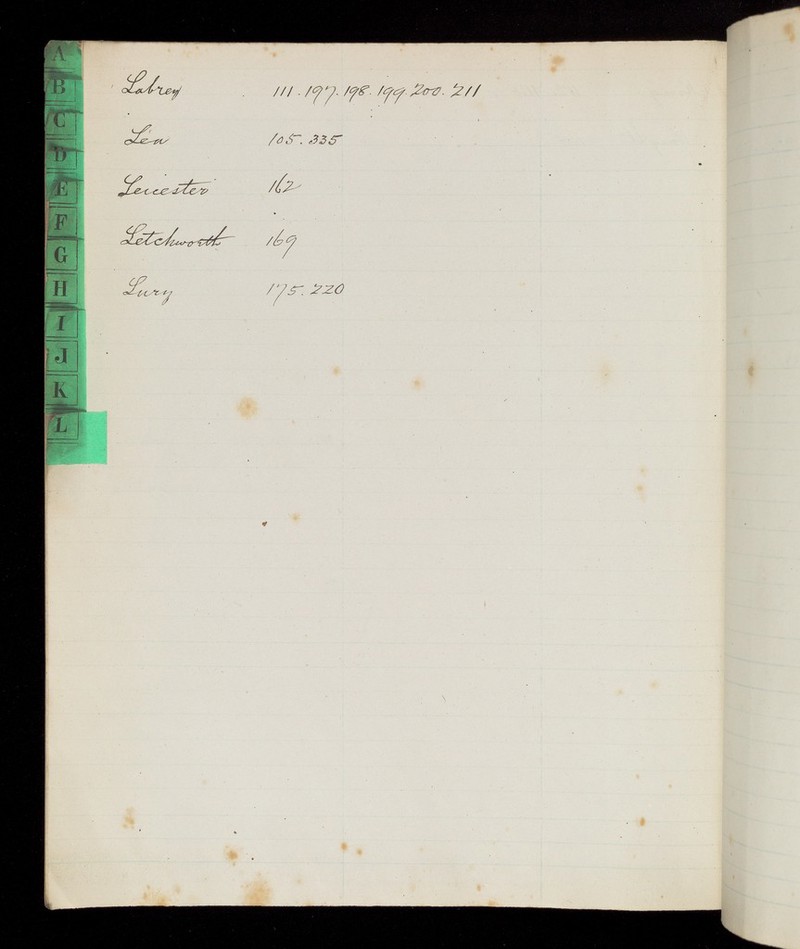 A
B
C
D
E
F
G
H
I
J
K
L
Labrey 111. 197. 198. 199. 200. 211
Lea 105. 335
Leicester 162
Letchworth 169
Lury 175. 220